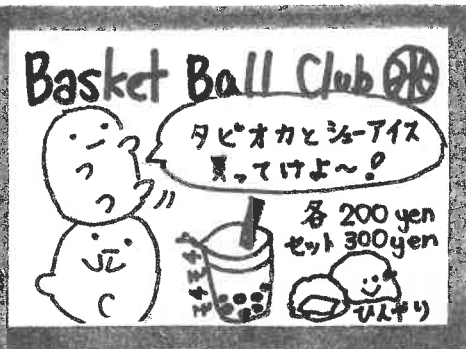 Basket Ball Club
タピオカとシューアイス
買ってけよ〜!
各 200 yen
セット 300 yen
モチモチ
ひんやり